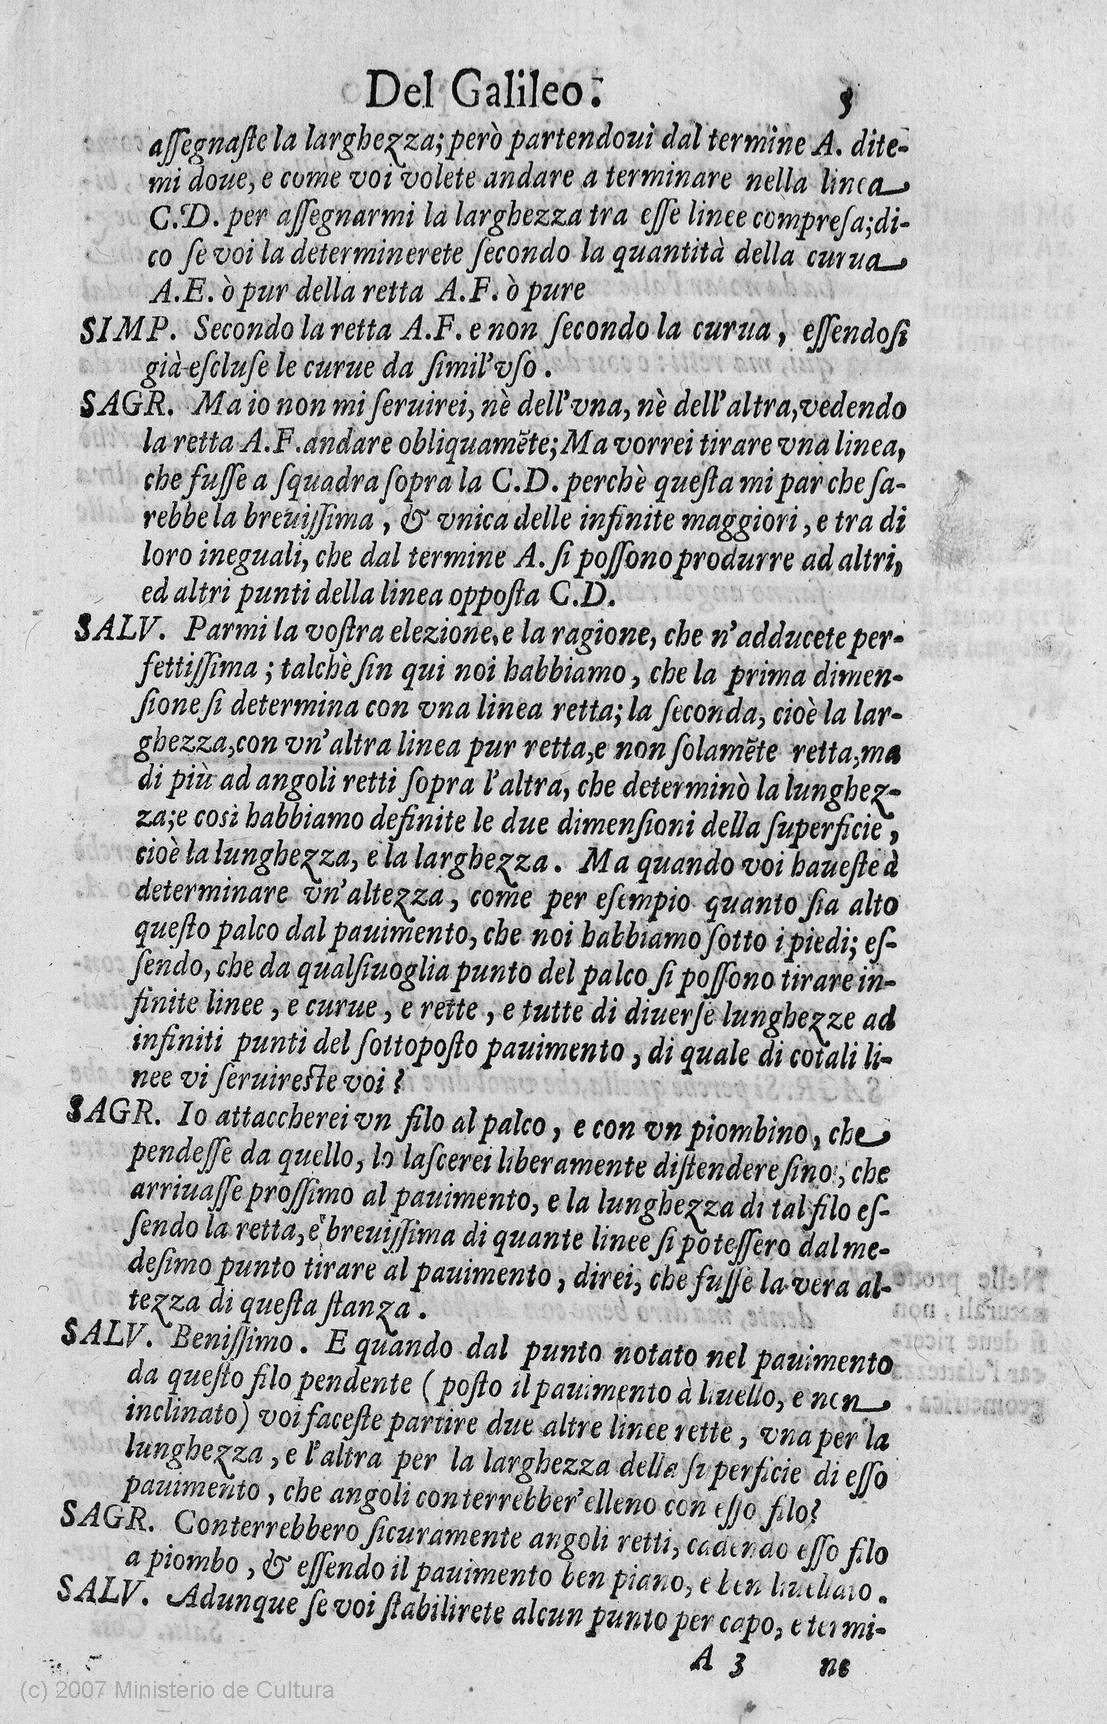 Del Galileo. 5
assegnaste la larghezza; però partendoui dal termine A. dite-
mi doue, e come voi volete andare a terminare nella linea
C.D. per assegnarmi la larghezza tra esse linee compresa; di-
co se voi la determinerete secondo la quantità della curua
A.E. ò pur della retta A.F. ò pure
SIMP. Secondo la retta A.F. e non secondo la curua, essendosi
già escluse le curue da simil'vso.
SAGR. Ma io non mi seruirei, nè dell'vna, nè dell'altra, vedendo
la retta A.F. andare obliquamēte; Ma vorrei tirare vna linea,
che fusse a squadra sopra la C.D. perchè questa mi par che sa-
rebbe la breuissima, & vnica delle infinite maggiori, e tra di
loro ineguali, che dal termine A. si possono produrre ad altri,
ed altri punti della linea opposta C.D.
SALV. Parmi la vostra elezione, e la ragione, che n'adducete per-
fettissima; talchè sin qui noi habbiamo, che la prima dimen-
sione si determina con vna linea retta; la seconda, cioè la lar-
ghezza, con vn'altra linea pur retta, e non solamēte retta, ma
di più ad angoli retti sopra l'altra, che determinò la lunghez-
za; e così habbiamo definite le due dimensioni della superficie,
cioè la lunghezza, e la larghezza. Ma quando voi haueste à
determinare vn'altezza, come per esempio quanto sia alto
questo palco dal pauimento, che noi habbiamo sotto i piedi; es-
sendo, che da qualsiuoglia punto del palco si possono tirare in-
finite linee, e curue, e rette, e tutte di diuerse lunghezze ad
infiniti punti del sottoposto pauimento, di quale di cotali li-
nee vi seruireste voi?
SAGR. Io attaccherei vn filo al palco, e con vn piombino, che
pendesse da quello, lo lascerei liberamente distendere sino, che
arriuasse prossimo al pauimento, e la lunghezza di tal filo es-
sendo la retta, e breuissima di quante linee si potessero dal me-
desimo punto tirare al pauimento, direi, che fusse la vera al-
tezza di questa stanza.
SALV. Benissimo. E quando dal punto notato nel pauimento
da questo filo pendente (posto il pauimento à liuello, e non
inclinato) voi faceste partire due altre linee rette, vna per la
lunghezza, e l'altra per la larghezza della superficie di esso
pauimento, che angoli conterrebber'elleno con esso filo?
SAGR. Conterrebbero sicuramente angoli retti, cadendo esso filo
a piombo, & essendo il pauimento ben piano, e ben liuellato.
SALV. Adunque se voi stabilirete alcun punto per capo, e termi-
A 3 ne
(c) 2007 Ministerio de Cultura